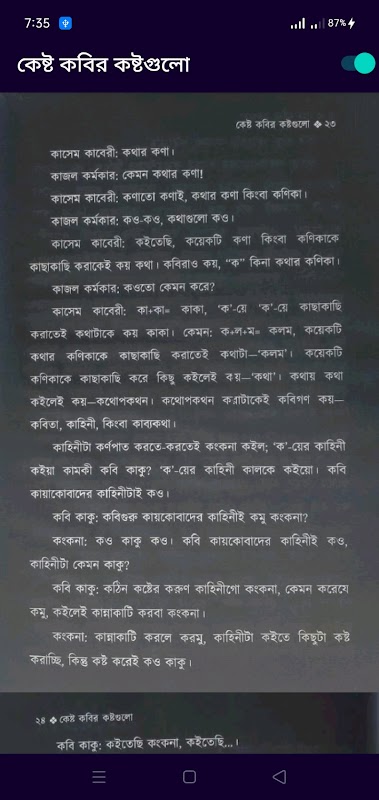 7:35
87%
কেষ্ট কবির কষ্টগুলো
কেষ্ট কবির কষ্টগুলো ❖ ২৩
কাসেম কাবেরী: কথার কণা।
কাজল কর্মকার: কেমন কথার কণা!
কাসেম কাবেরী: কণাতো কণাই, কথার কণা কিংবা কণিকা।
কাজল কর্মকার: কও-কও, কথাগুলো কও।
কাসেম কাবেরী: কইতেছি, কয়েকটি কণা কিংবা কণিকাকে
কাছাকাছি করাকেই কয় কথা। কবিরাও কয়, “ক” কিনা কথার কণিকা।
কাজল কর্মকার: কওতো কেমন করে?
কাসেম কাবেরী: কা+কা= কাকা, ‘ক’-য়ে ‘ক’-য়ে কাছাকাছি
করাতেই কথাটাকে কয় কাকা। কেমন: ক+ল+ম= কলম, কয়েকটি
কথার কণিকাকে কাছাকাছি করাতেই কথাটা—‘কলম’। কয়েকটি
কণিকাকে কাছাকাছি করে কিছু কইলেই কয়—‘কথা’। কথায় কথা
কইলেই কয়—কথোপকথন। কথোপকথন করাটাকেই কবিগণ কয়—
কবিতা, কাহিনী, কিংবা কাব্যকথা।
কাহিনীটা কর্ণপাত করতে-করতেই কংকনা কইল; ‘ক’-য়ের কাহিনী
কইয়া কামকী কবি কাকু? ‘ক’-য়ের কাহিনী কালকে কইয়ো। কবি
কায়াকোবাদের কাহিনীটাই কও।
কবি কাকু: কবিগুরু কায়কোবাদের কাহিনীই কমু কংকনা?
কংকনা: কও কাকু কও। কবি কায়কোবাদের কাহিনীই কও,
কাহিনীটা কেমন কাকু?
কবি কাকু: কঠিন কষ্টের করুণ কাহিনীগো কংকনা, কেমন করেযে
কমু, কইলেই কান্নাকাটি করবা কংকনা।
কংকনা: কান্নাকাটি করলে করমু, কাহিনীটা কইতে কিছুটা কষ্ট
করাচ্ছি, কিন্তু কষ্ট করেই কও কাকু।
২৪ ❖ কেষ্ট কবির কষ্টগুলো
কবি কাকু: কইতেছি কংকনা, কইতেছি...।